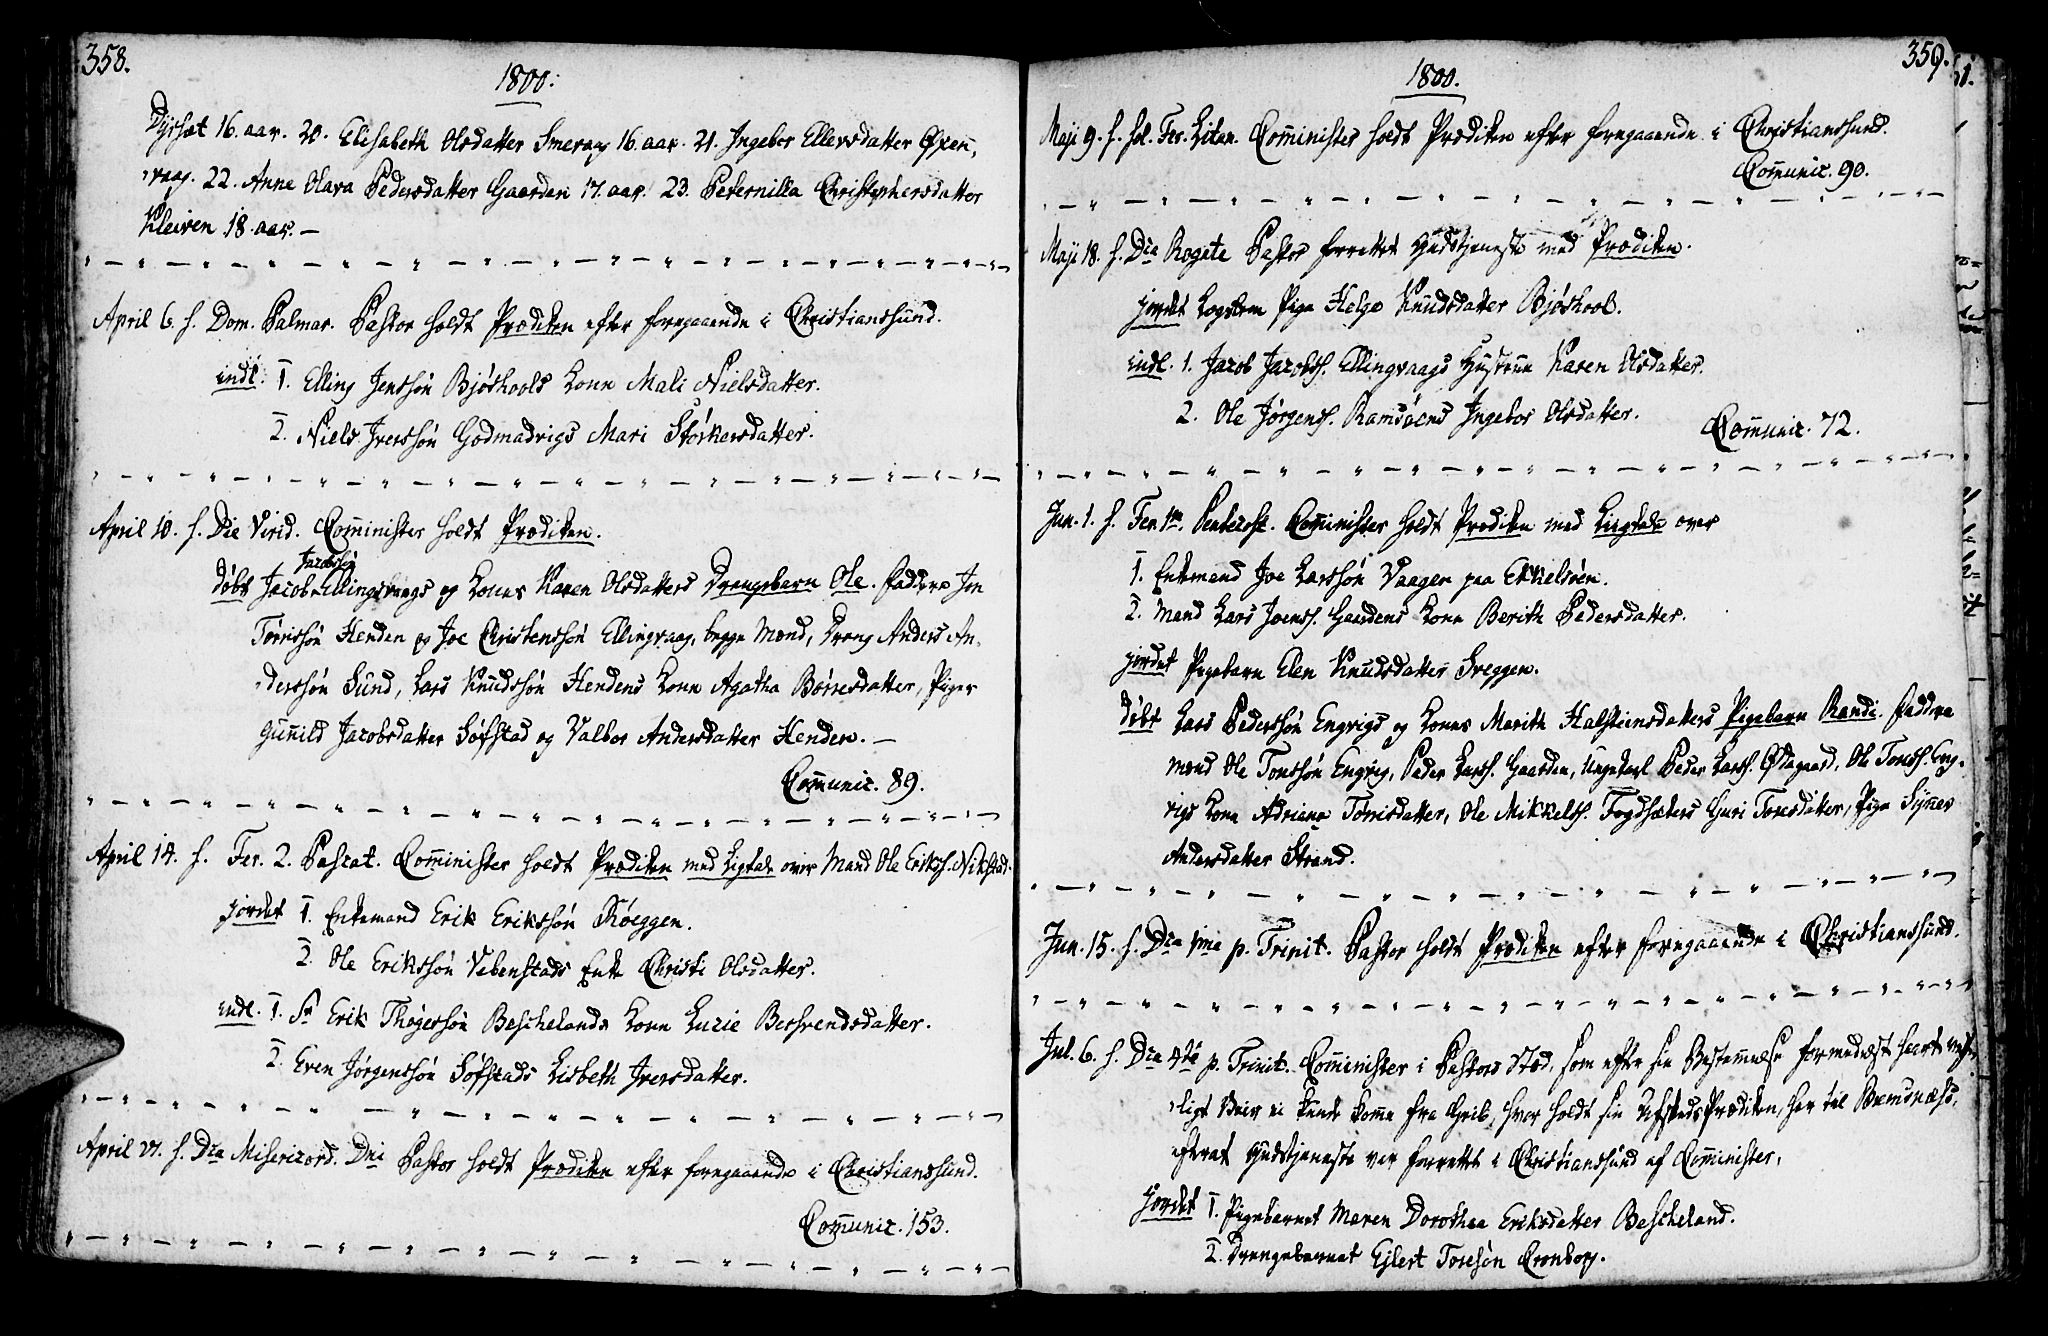 358.
1800.
Dyrsæt 16. aar. 20. Elisabeth Olsdatter Smevaag 16. aar. 21. Ingebor Ellevsdatter Øxen,
vaag. 22. Anne Olava Pedersdatter Gaarden 17. aar. 23. Peternilla Christophersdatter
Kleiven 18. aar. —
April 6. h. Dom. Palmar. Pastor holdt Prædiken efter foregaaende i Christianssund.
indl. 1. Elling Jenssøn Bjøshools Kone Mali Nielsdatter.
2. Niels Iverssøn Godmadvigs Mari Størkersdatter.
April 10. h. Die Virid. Comminister holdt Prædiken.
døbt Jacob Jacobssøn Ellingvaags og Kones Karen Olsdatters Drengebarn Ole. Faddere Jon
Tørrissøn Henden og Joe Christenssøn Ellingvaag, begge Mænd, Dreng Anders An-
derssøn Sund, Lars Knudssøn Hendens Kone Agatha Børresdatter, Piger
Gunnild Jacobsdatter Søfstad og Valbor Andersdatter Henden. —
Communic. 89.
April 14. h. Fer. 2. Pascat. Comminister holdt Prædiken med Ligtale over Mand Ole Erikss. Nikstad.
jordet 1. Enkemand Erik Erikssøn Røeggen.
2. Ole Erikssøn Vebenstads Enke Christi Olsdatter.
indl. 1. Sr Erik Thøgersøn Beschelands Kone Lucie Behrendsdatter.
2. Even Jørgenssøn Søfstads Lisbeth Iversdatter.
April 27. h. Dca Misericord. Dni Pastor holdt Prædiken efter foregaaende i Christianssund.
Communic. 153.
359.
1800.
Maji 9. h. sol. Fer. Litan. Comminister holdt Prædiken efter foregaaende i Christianssund.
Communic. 90.
Maji 18. h. Dca Rogate Pastor forrettet Gudstjeneste med Prædiken.
jordet Pige Helge Knudsdatter Bjøshool.
indl. 1. Jacob Jacobss. Ellingvaags Hustrue Karen Olsdatter.
2. Ole Jørgenss. Ramsøens Ingebor Olsdatter.
Communic. 72.
Jun. 1. h. Fer. 1ma Pentecost. Comminister holdt Prædiken med Ligtale over
1. Enkemand Joe Larssøn Vaagen paa Ekkelsøen.
2. Mand Lars Joenss. Gaardens Kone Berith Pedersdatter.
jordet Pigebarn Elen Knudsdatter Sveggen.
døbt Lars Pederssøn Engvigs og Kones Marith Halsteinsdatters Pigebarn Randi. Faddere
Mænd Ole Toressøn Engvig, Peder Larss. Gaarden, Ungekarl Peder Larss. Østegaard, Ole Toress. Eng-
vigs Kone Adriana Tørrisdatter, Ole Mikkelss. Fogdsæters Guri Toresdatter, Pige Synev
Andersdatter Strand.
Jun. 15. h. Dca 1ma p. Trinit. Pastor holdt Prædiken efter foregaaende i Christianssund.
Jul. 6. h. Dca 4te p. Trinit. Comminister i Pastors Sted, som efter sin Bestemmelse formedelst
ligt Veir ei kunde komme fra Grib, hvor holdt sin Afskeds Prædiken, her til Bremsnæss,
efterat Gudstjeneste var forrettet i Christianssund af Comminister.
jordet 1. Pigebarnet Maren Dorothea Eriksdatter Bescheland.
2. Drengebarnet Ejlert Toresøn Cronborg.